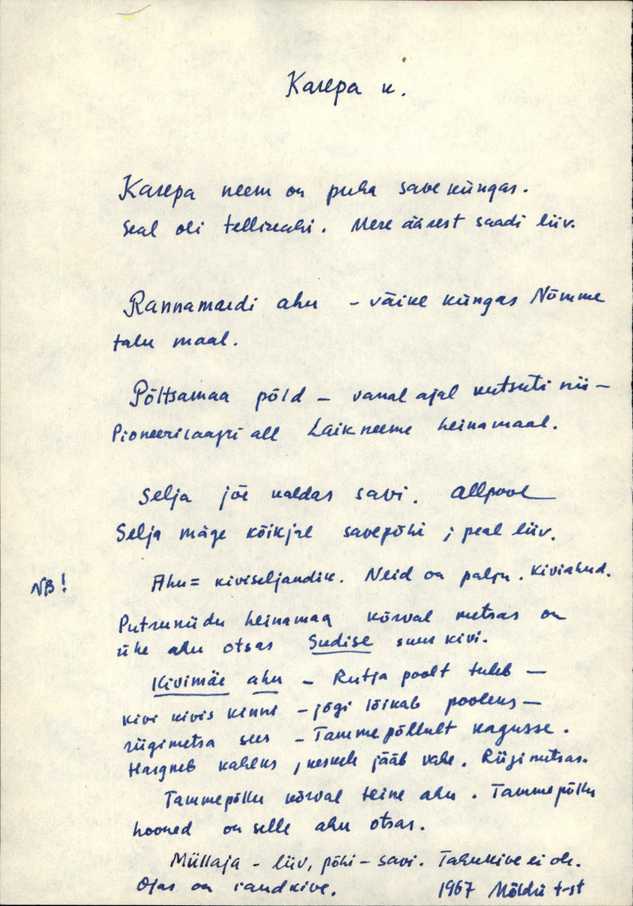 Karepa k.
Karepa neem on puha savekūngas.
Seal oli telliseahi. Mere äärest saadi liiv.
Rannamardi ahu – väike küngas Nõmme
talu maal.
Põltsamaa põld – vanal ajal kutsuti nii –
Pioneerilaagri all Laikneeme heinamaal.
Selja jõe kaldas savi. Allpool
Selja mäge kõikjal savepõhi ; peal liiv.
NB! Ahu = kiviseljandik. Neid on palju. Kiviahud.
heinamaa kõrval metsas on
ühe ahu otsas Sudise suur kivi.
Kivimäe ahu – Rutja poolt tuleb –
kivi kivis kinni – jõgi lõikab pooleks –
riigimetsa sees – Tammepõllult kagusse.
Hargneb kaheks, keskele jääb vahe. Riigimetsas.
Tammepõllu kõrval teine ahu. Tammepõllu
hooned on selle ahu otsas.
Müllaja – liiv, põhi – savi. Tahukive ei ole.
Ojas on raudkive. 1967 Mõldri t-st